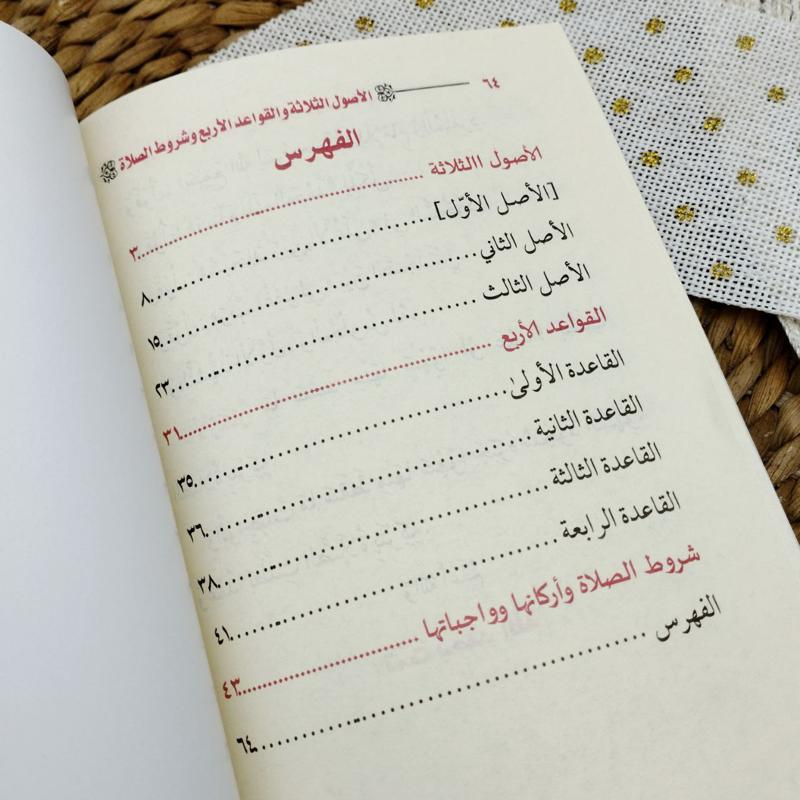 ٦٤ الأصول الثلاثة والقواعد الأربع وشروط الصلاة
الفهرس
الأصول االثلاثة ٣
[الأصل الأوّل] ٨
الأصل الثاني ١٥
الأصل الثالث ٢٣
القواعد الأربع ٣١
القاعدة الأولىٰ ٣٥
القاعدة الثانية ٣٦
القاعدة الثالثة ٣٨
القاعدة الرابعة ٤١
شروط الصلاة وأركانها وواجباتها ٤٣
الفهرس ٦٤